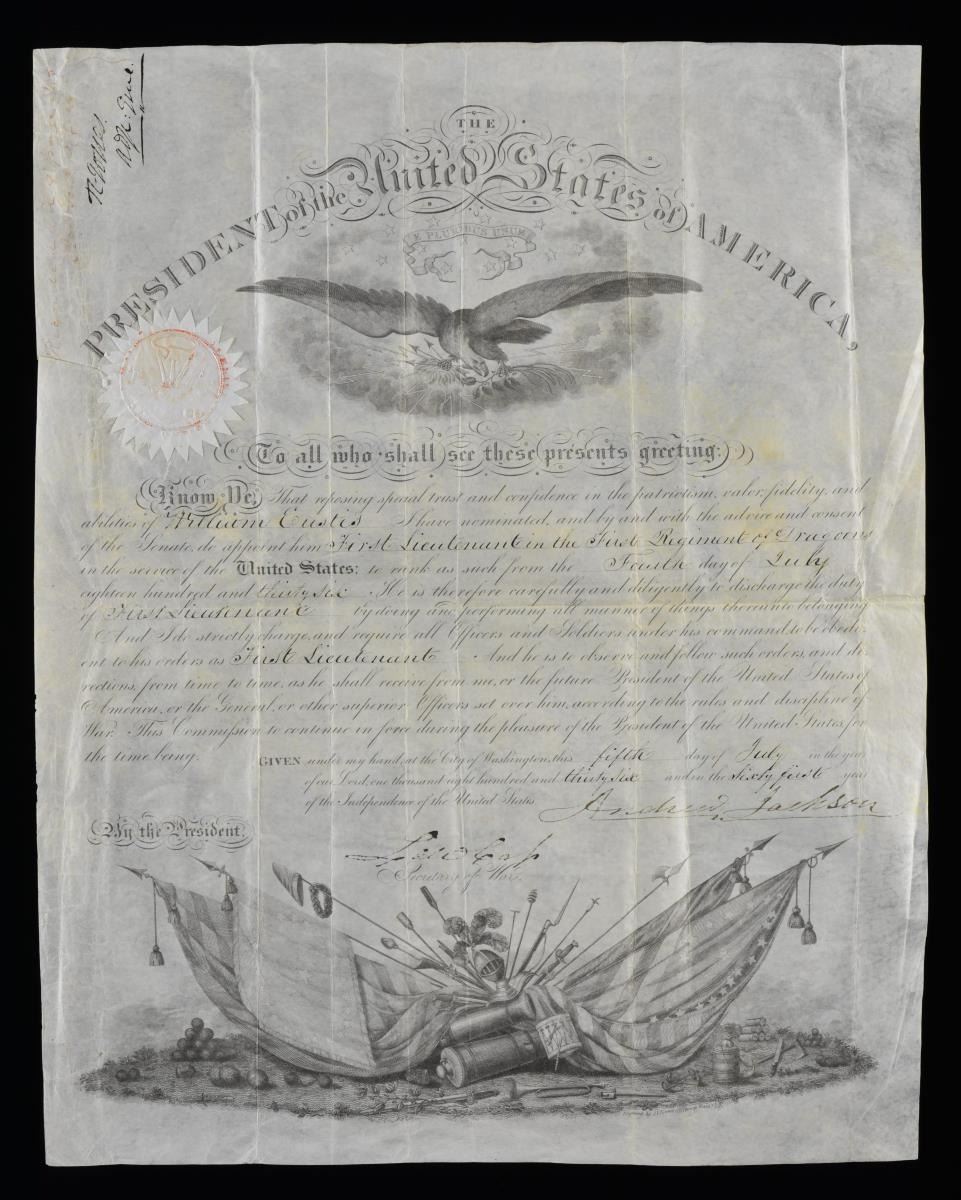 R. Jones
Adj: Gene.
THE
PRESIDENT of the United States of AMERICA,
E PLURIBUS UNUM
To all who shall see these presents greeting:
Know Ye, That reposing special trust and confidence in the patriotism, valor, fidelity, and
abilities of William Eustis I have nominated, and by and with the advice and consent
of the Senate, do appoint him First Lieutenant in the First Regiment of Dragoons
in the service of the United States: to rank as such from the Fourth day of July
eighteen hundred and thirty six He is therefore carefully and diligently to discharge the duty
of First Lieutenant by doing and performing all manner of things thereunto belonging
And I do strictly charge, and require all Officers and Soldiers under his command, to be obedi-
ent to his orders as First Lieutenant And he is to observe and follow such orders, and di-
rections, from time to time, as he shall receive from me, or the future President of the United States of
America, or the General, or other superior Officers set over him, according to the rules and discipline of
War. This Commission to continue in force during the pleasure of the President of the United States, for
the time being.
GIVEN under my hand, at the City of Washington, this fifth day of July in the year
of our Lord, one thousand eight hundred and thirty six and in the Sixty first year
of the Independence of the United States.
Andrew Jackson
By the President.
Lew Cass
Secretary of War.